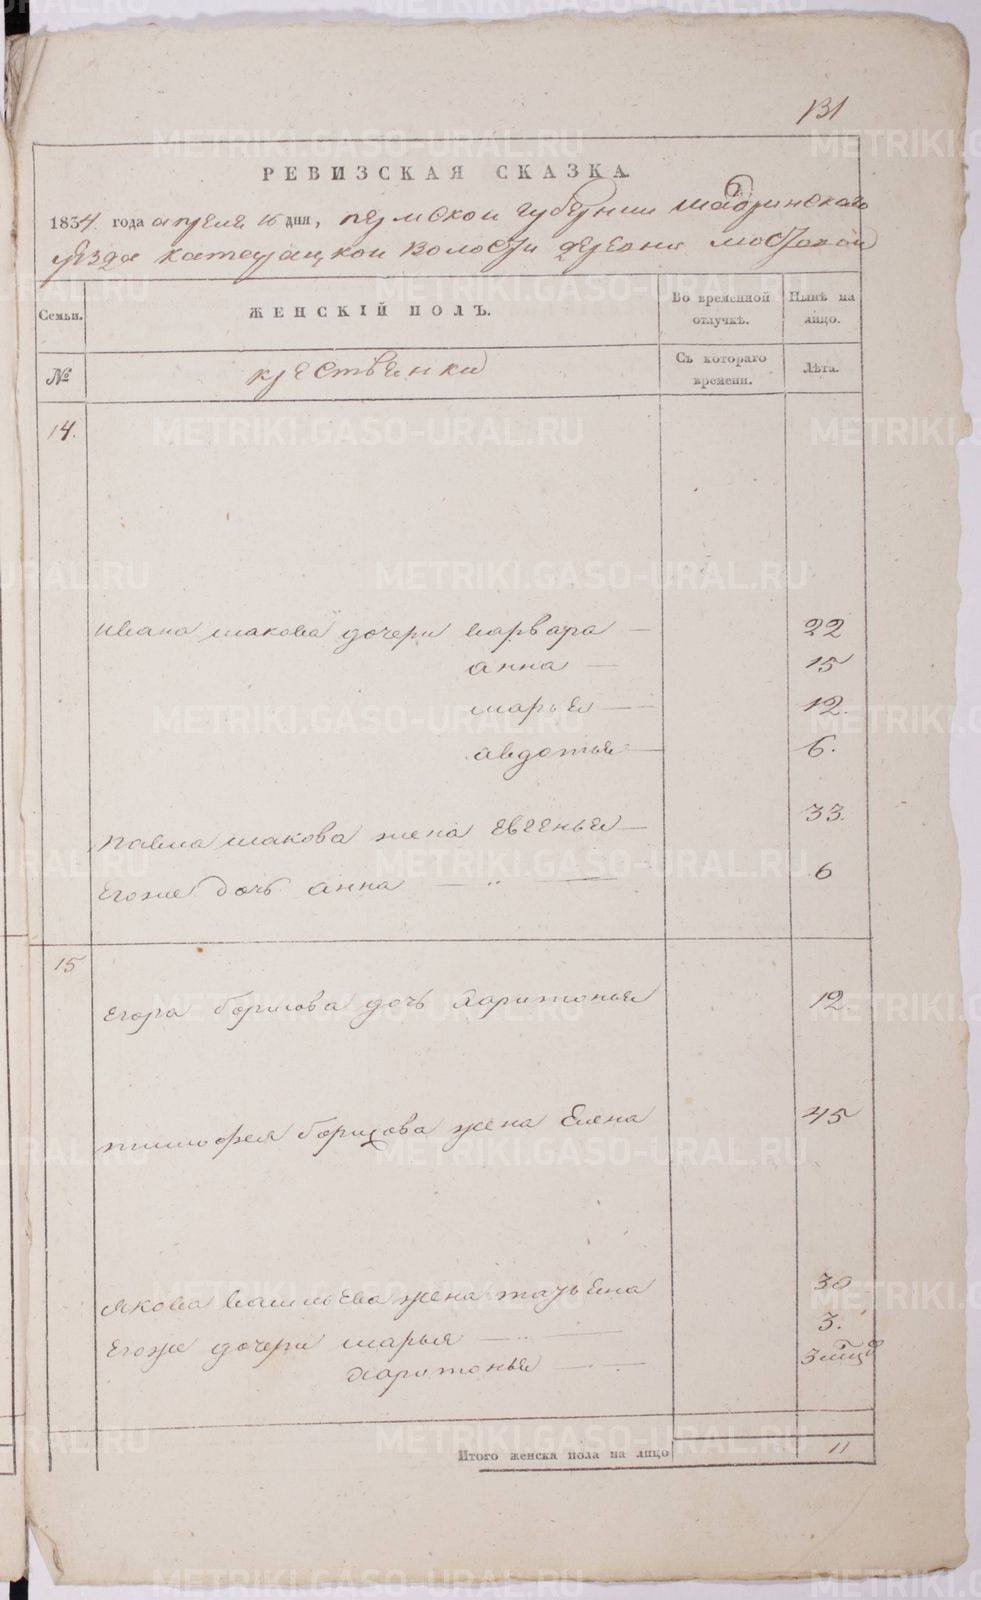 131
РЕВИЗСКАЯ СКАЗКА
1834 года апреля 16 дня, пермской губернии шадринскаго
уезда катайской волости деревни мостовой
Семьи. ЖЕНСКІЙ ПОЛЪ. Во временной отлучкѣ. Нынѣ на лицо.
№ крестьенки Съ котораго времени. Лѣта.
14.
ивана иакова дочери варвара — 22
анна — 15
марья — 12.
авдотья — 6.
павла иакова жена евгенья — 33.
егоже дочь анна — 6
15
егора борисова дочь харитонья 12.
тимофея борисова жена елена 45
якова васильева жена татьена 30
егоже дочери марья — 3.
харитонья — 3 мцо
Итого женска пола на лицо 11
METRIKI.GASO-URAL.RU